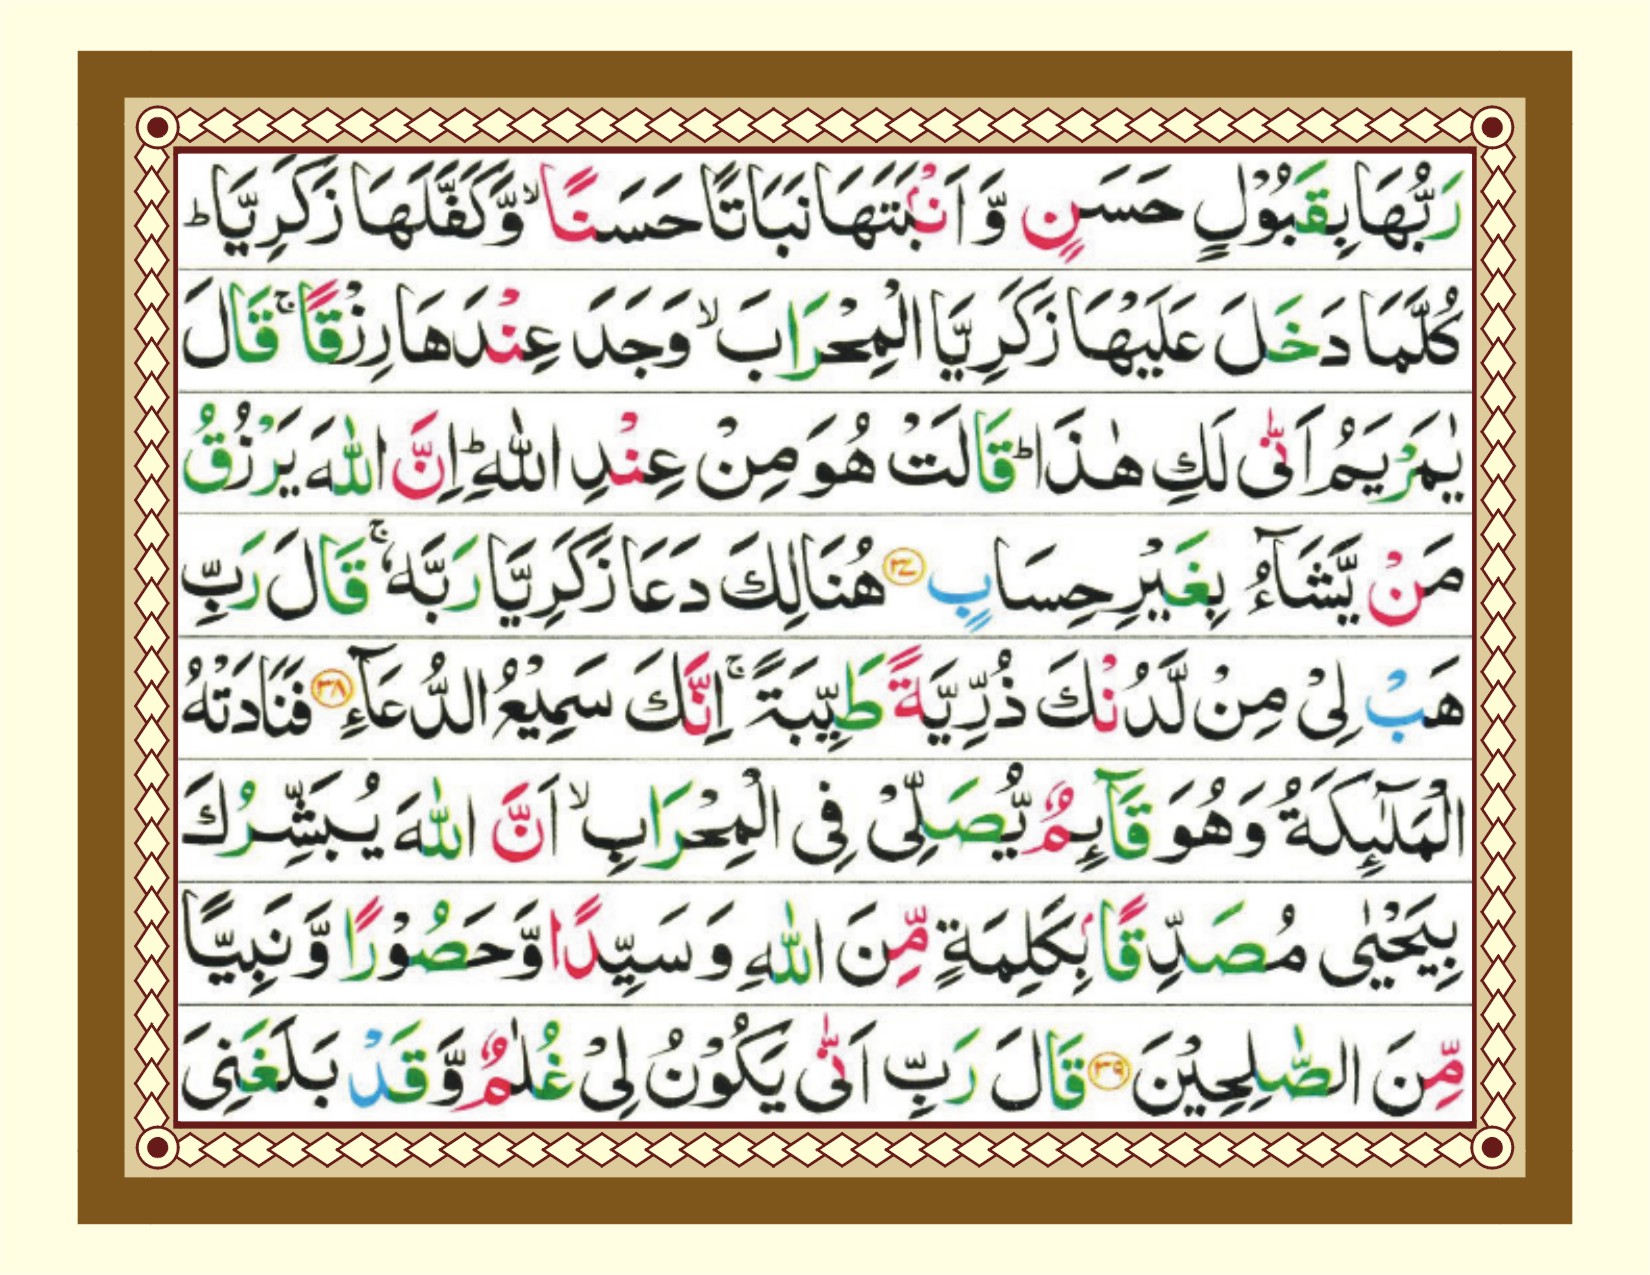 رَبُّهَا بِقَبُوْلٍ حَسَنٍ وَّ اَنْۢبَتَهَا نَبَاتًا حَسَنًا ۙ وَّ كَفَّلَهَا زَكَرِيَّا ؕ
كُلَّمَا دَخَلَ عَلَيْهَا زَكَرِيَّا الْمِحْرَابَ ۙ وَجَدَ عِنْدَهَا رِزْقًا ۚ قَالَ
يٰمَرْيَمُ اَنّٰى لَكِ هٰذَا ؕ قَالَتْ هُوَ مِنْ عِنْدِ اللّٰهِ ؕ اِنَّ اللّٰهَ يَرْزُقُ
مَنْ يَّشَآءُ بِغَيْرِ حِسَابٍ ۳۷ هُنَالِكَ دَعَا زَكَرِيَّا رَبَّهٗ ۚ قَالَ رَبِّ
هَبْ لِىْ مِنْ لَّدُنْكَ ذُرِّيَّةً طَيِّبَةً ۚ اِنَّكَ سَمِيْعُ الدُّعَآءِ ۳۸ فَنَادَتْهُ
الْمَلٰٓئِكَةُ وَهُوَ قَآئِمٌ يُّصَلِّىْ فِى الْمِحْرَابِ ۙ اَنَّ اللّٰهَ يُبَشِّرُكَ
بِيَحْيٰى مُصَدِّقًاۢ بِكَلِمَةٍ مِّنَ اللّٰهِ وَ سَيِّدًا وَّ حَصُوْرًا وَّ نَبِيًّا
مِّنَ الصّٰلِحِيْنَ ۳۹ قَالَ رَبِّ اَنّٰى يَكُوْنُ لِىْ غُلٰمٌ وَّ قَدْ بَلَغَنِىَ